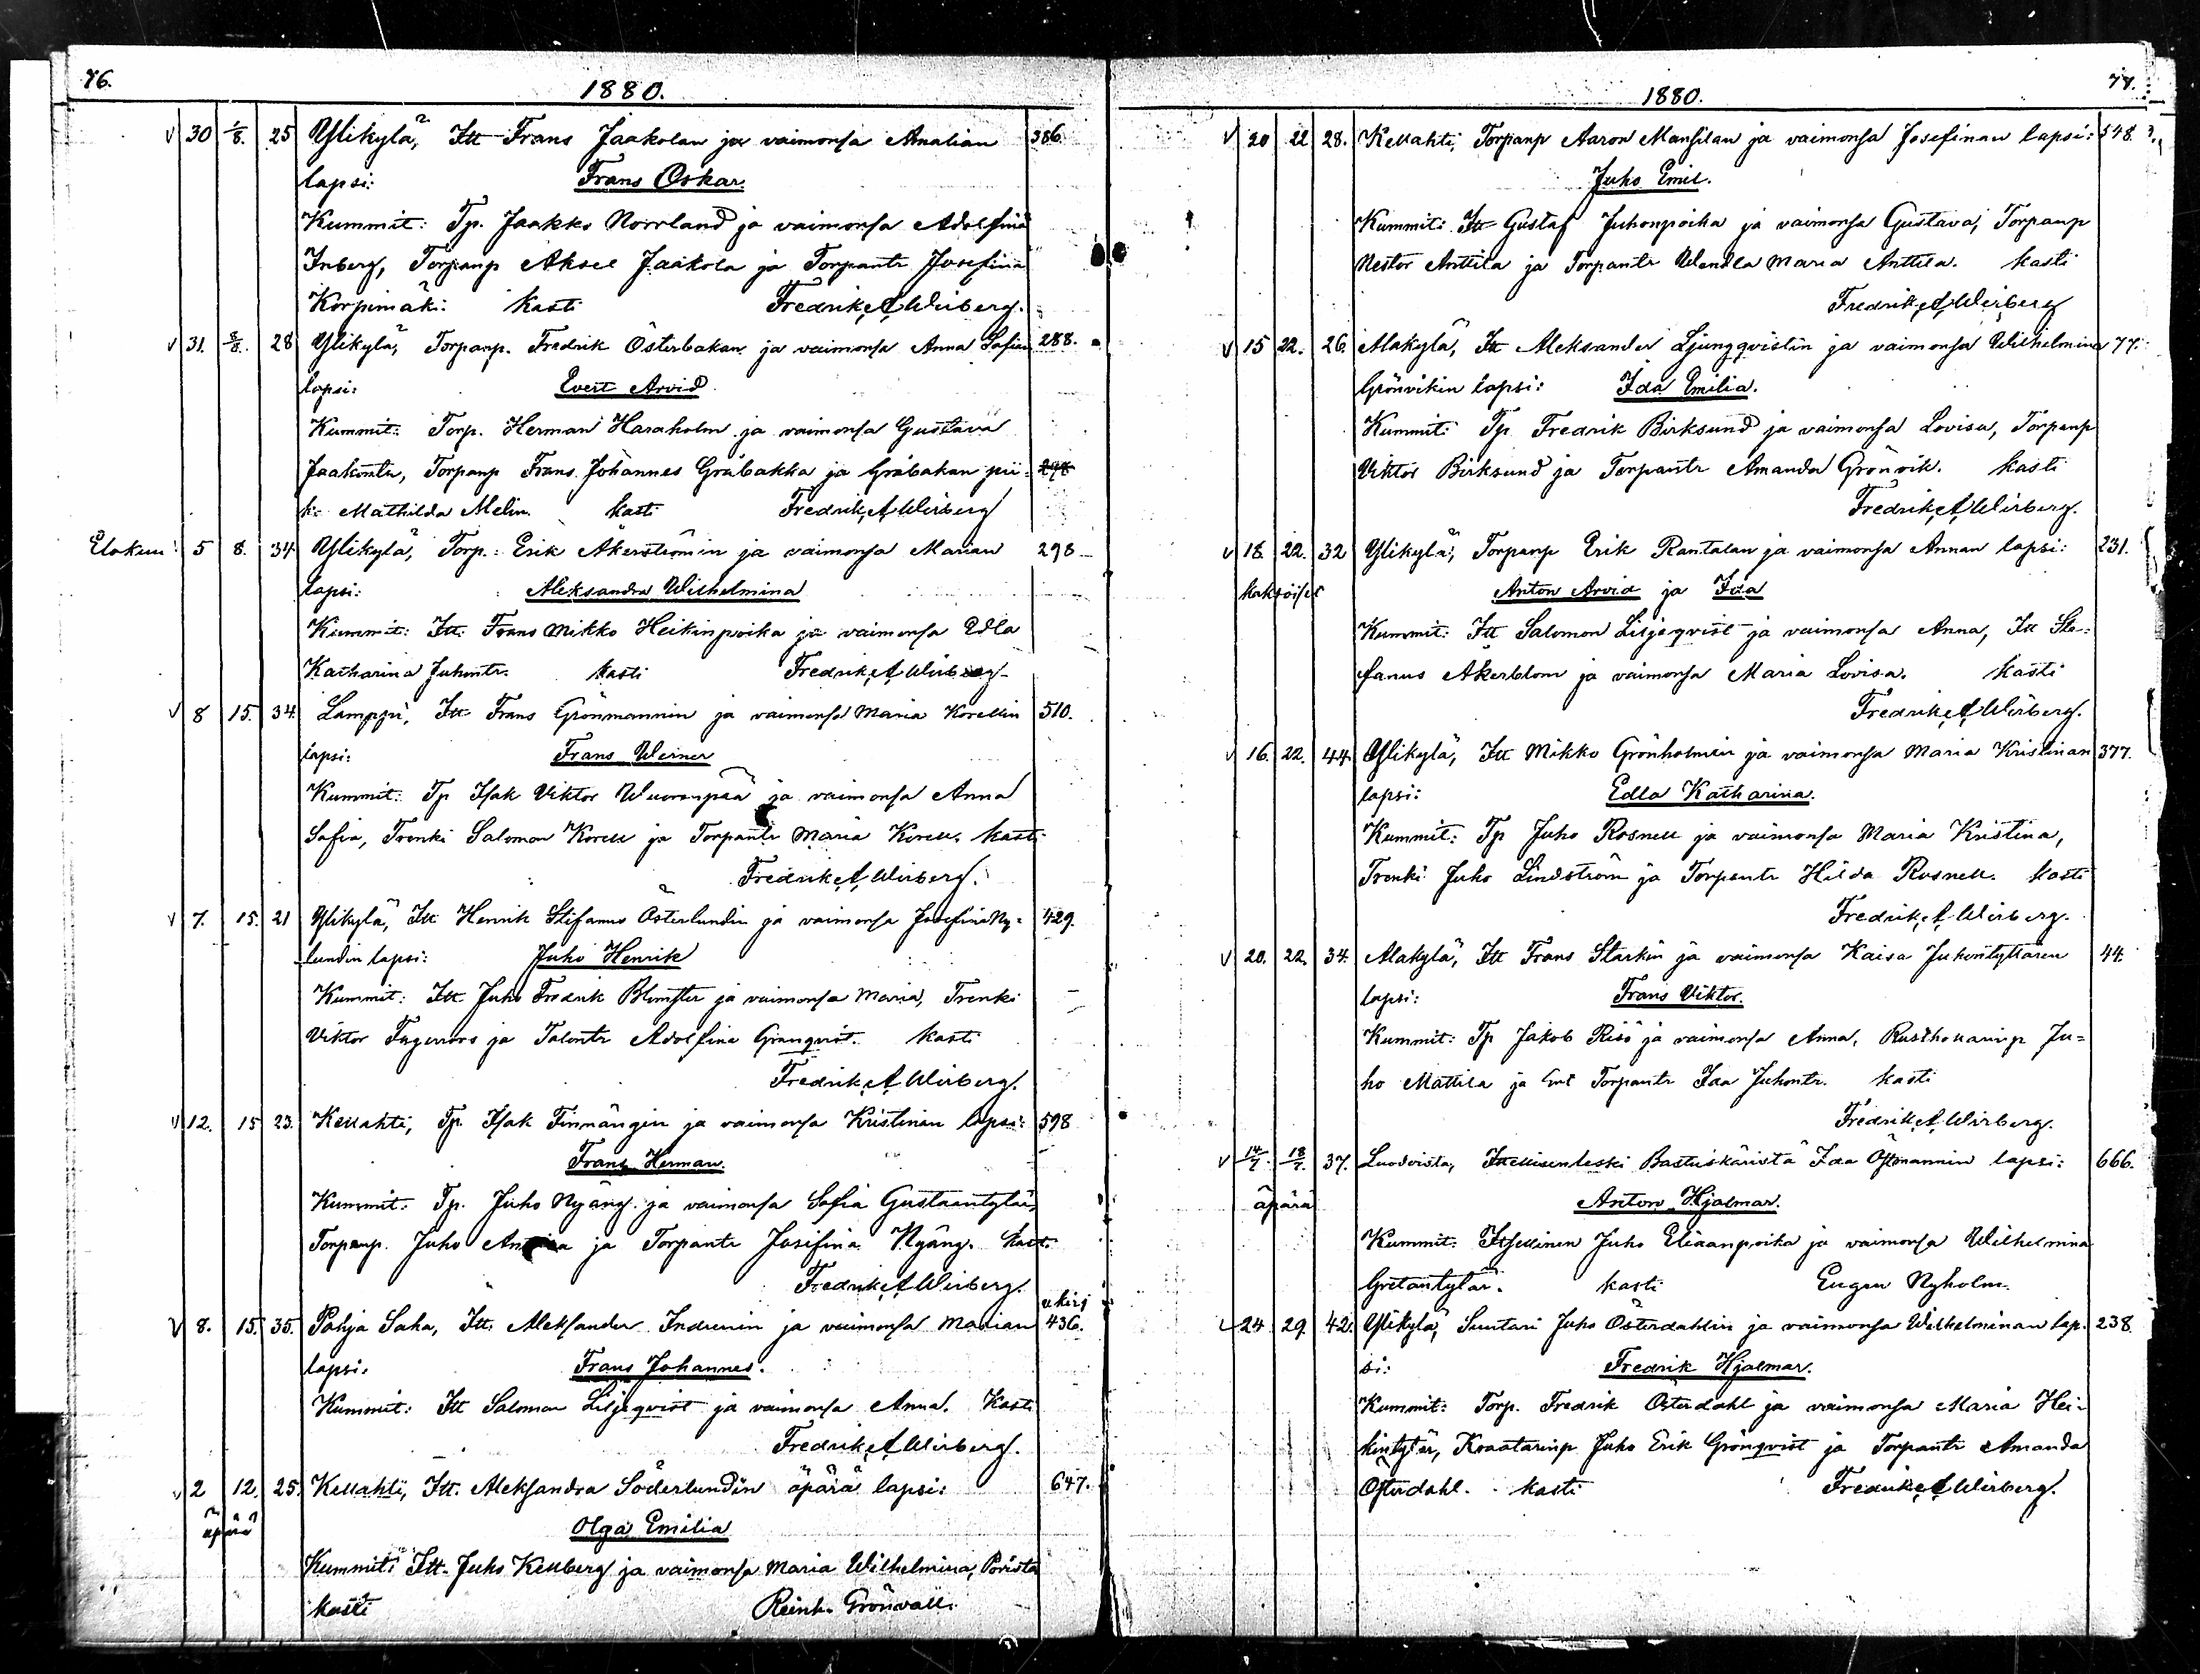 76.
1880.
v 30 1/8. 25 Ylikylä, Itt Frans Jaakolan ja vaimonsa Amalian 386.
lapsi: Frans Oskar
Kummit: Tp. Jaakko Norrland ja vaimonsa Adolfina
Inberg, Torpanp Aksel Jaakola ja Torpantr Josefina
Korpimäki. kasti Fredrik A Wirberg.
v 31. 8/8. 28 Ylikylä, Torpanp. Fredrik Österbakan ja vaimonsa Anna Sofian 288.
lapsi: Evert Arvid
Kummit: Torp. Herman Haraholm ja vaimonsa Gustava
Jaakontr, Torpanp Frans Johannes Gräbakka ja Gräbakan pii- 298
k: Mathilda Melin. kasti Fredrik A Wirberg
Elokuu: 5 8. 34 Ylikylä, Torp.: Erik Åkerströmin ja vaimonsa Marian 298
lapsi: Aleksandra Wilhelmina
Kummit: Itt: Frans Mikko Heikinpoika ja vaimonsa Edla
Katharina Juhontr. kasti Fredrik A Wirberg
v 8 15. 34. Lamppi, Itt Frans Grönmannin ja vaimonsa Maria Korellin 510.
lapsi: Frans Werner
Kummit: Tp Isak Viktor Wuorenpää ja vaimonsa Anna
Sofia, Trenki Salomon Korell ja Torpantr Maria Korell. kasti
Fredrik A Wirberg.
v 7. 15. 21 Ylikylä, Itt Henrik Stefanus Österlundin ja vaimonsa Josefina Ny- 429.
lundin lapsi: Juho Henrik
Kummit: Itt Juho Fredrik Blomster ja vaimonsa Maria, Trenki
Viktor Fagerroos ja Talontr Adolfina Granqvist. kasti
Fredrik A Wirberg.
v 12. 15 23. Kellahti, Tp. Isak Finnängin ja vaimonsa Kristinan lapsi: 598
Frans Herman.
Kummit: Tp. Juho Nyäng ja vaimonsa Sofia Gustaantytär,
Torpanp. Juho ja Torpantr Josifina Nyäng. kasti
Fredrik A Wirberg.
v 8. 15. 35. Pohja Saha, Itt. Aleksander Indrenin ja vaimonsa Marian 436.
lapsi. Frans Johannes.
Kummit: Itt Salomon Liljeqvist ja vaimonsa Anna. Kasti
Fredrik A Wirberg.
v 2 12. 25. Kellahti, Itt. Aleksandra Söderlundin äpärä lapsi: 647.
äpärä Olga Emilia
Kummit: Itt. Juho Kellberg ja vaimonsa Maria Wilhelmina, Porista
kasti Reinh. Grönvall.
77.
1880.
v 20 22 28. Kellahti, Torpanp Aaron Mansilan ja vaimonsa Josefinan lapsi: 548
Juho Emil.
Kummit: Itt Gustaf Juhonpoika ja vaimonsa Gustava, Torpanp
Nestor Anttila ja Torpantr Wendla Maria Anttila. kasti
Fredrik A Wirberg
v 15 22. 26. Alakylä, Itt Aleksander Ljungqvistin ja vaimonsa Wilhelmina 77.
Grönvikin lapsi: Ida Emilia.
Kummit: Tp Fredrik Birksund ja vaimonsa Lovisa, Torpanp
Viktor Birksund ja Torpantr Amanda Grönvik. kasti
Fredrik A Wirberg.
v 18. 22. 32 Ylikylä, Torpanp Erik Rantalan ja vaimonsa Annan lapsi: 231.
kaksoiset Anton Arvid ja Ida
Kummit: Itt Salomon Liljeqvist ja vaimonsa Anna, Itt Ste-
fanus Akerblom ja vaimonsa Maria Lovisa. kasti
Fredrik A Wirberg.
v 16. 22. 44. Ylikylä, Itt Mikko Grönholmin ja vaimonsa Maria Kristinan 377.
lapsi: Edla Katharina.
Kummit: Tp Juho Rosnell ja vaimonsa Maria Kristina,
Trenki Juho Lindström ja Torpantr Hilda Rosnell. kasti
Fredrik A Wirberg.
v 20. 22. 34. Alakylä, Itt Frans Starkin ja vaimonsa Kaisa Juhontyttären 44.
lapsi: Frans Viktor.
Kummit: Tp Jakob Risö ja vaimonsa Anna, Rusthollarinp Ju-
ho Mattila ja Torpantr Ida Juhontr. kasti
Fredrik A Wirberg.
v 14/7. 18/7. 37. Luodoista, Itsellisenleski Bastuskäristä Ida Östmannin lapsi: 666.
äpärä Anton Hjalmar.
Kummit: Itsellinen Juho Eliaanpoika ja vaimonsa Wilhelmina
Gretantytär. kasti Eugen Nyholm.
24 29. 42. Ylikylä, Suutari Juho Österdahlin ja vaimonsa Wilhelminan lap- 238.
si: Fredrik Hjalmar.
Kummit: Torp. Fredrik Österdahl ja vaimonsa Maria Hei-
kintytär, Kraatarinp. Juho Erik Grönqvist ja Torpantr Amanda
Österdahl. kasti Fredrik A Wirberg.